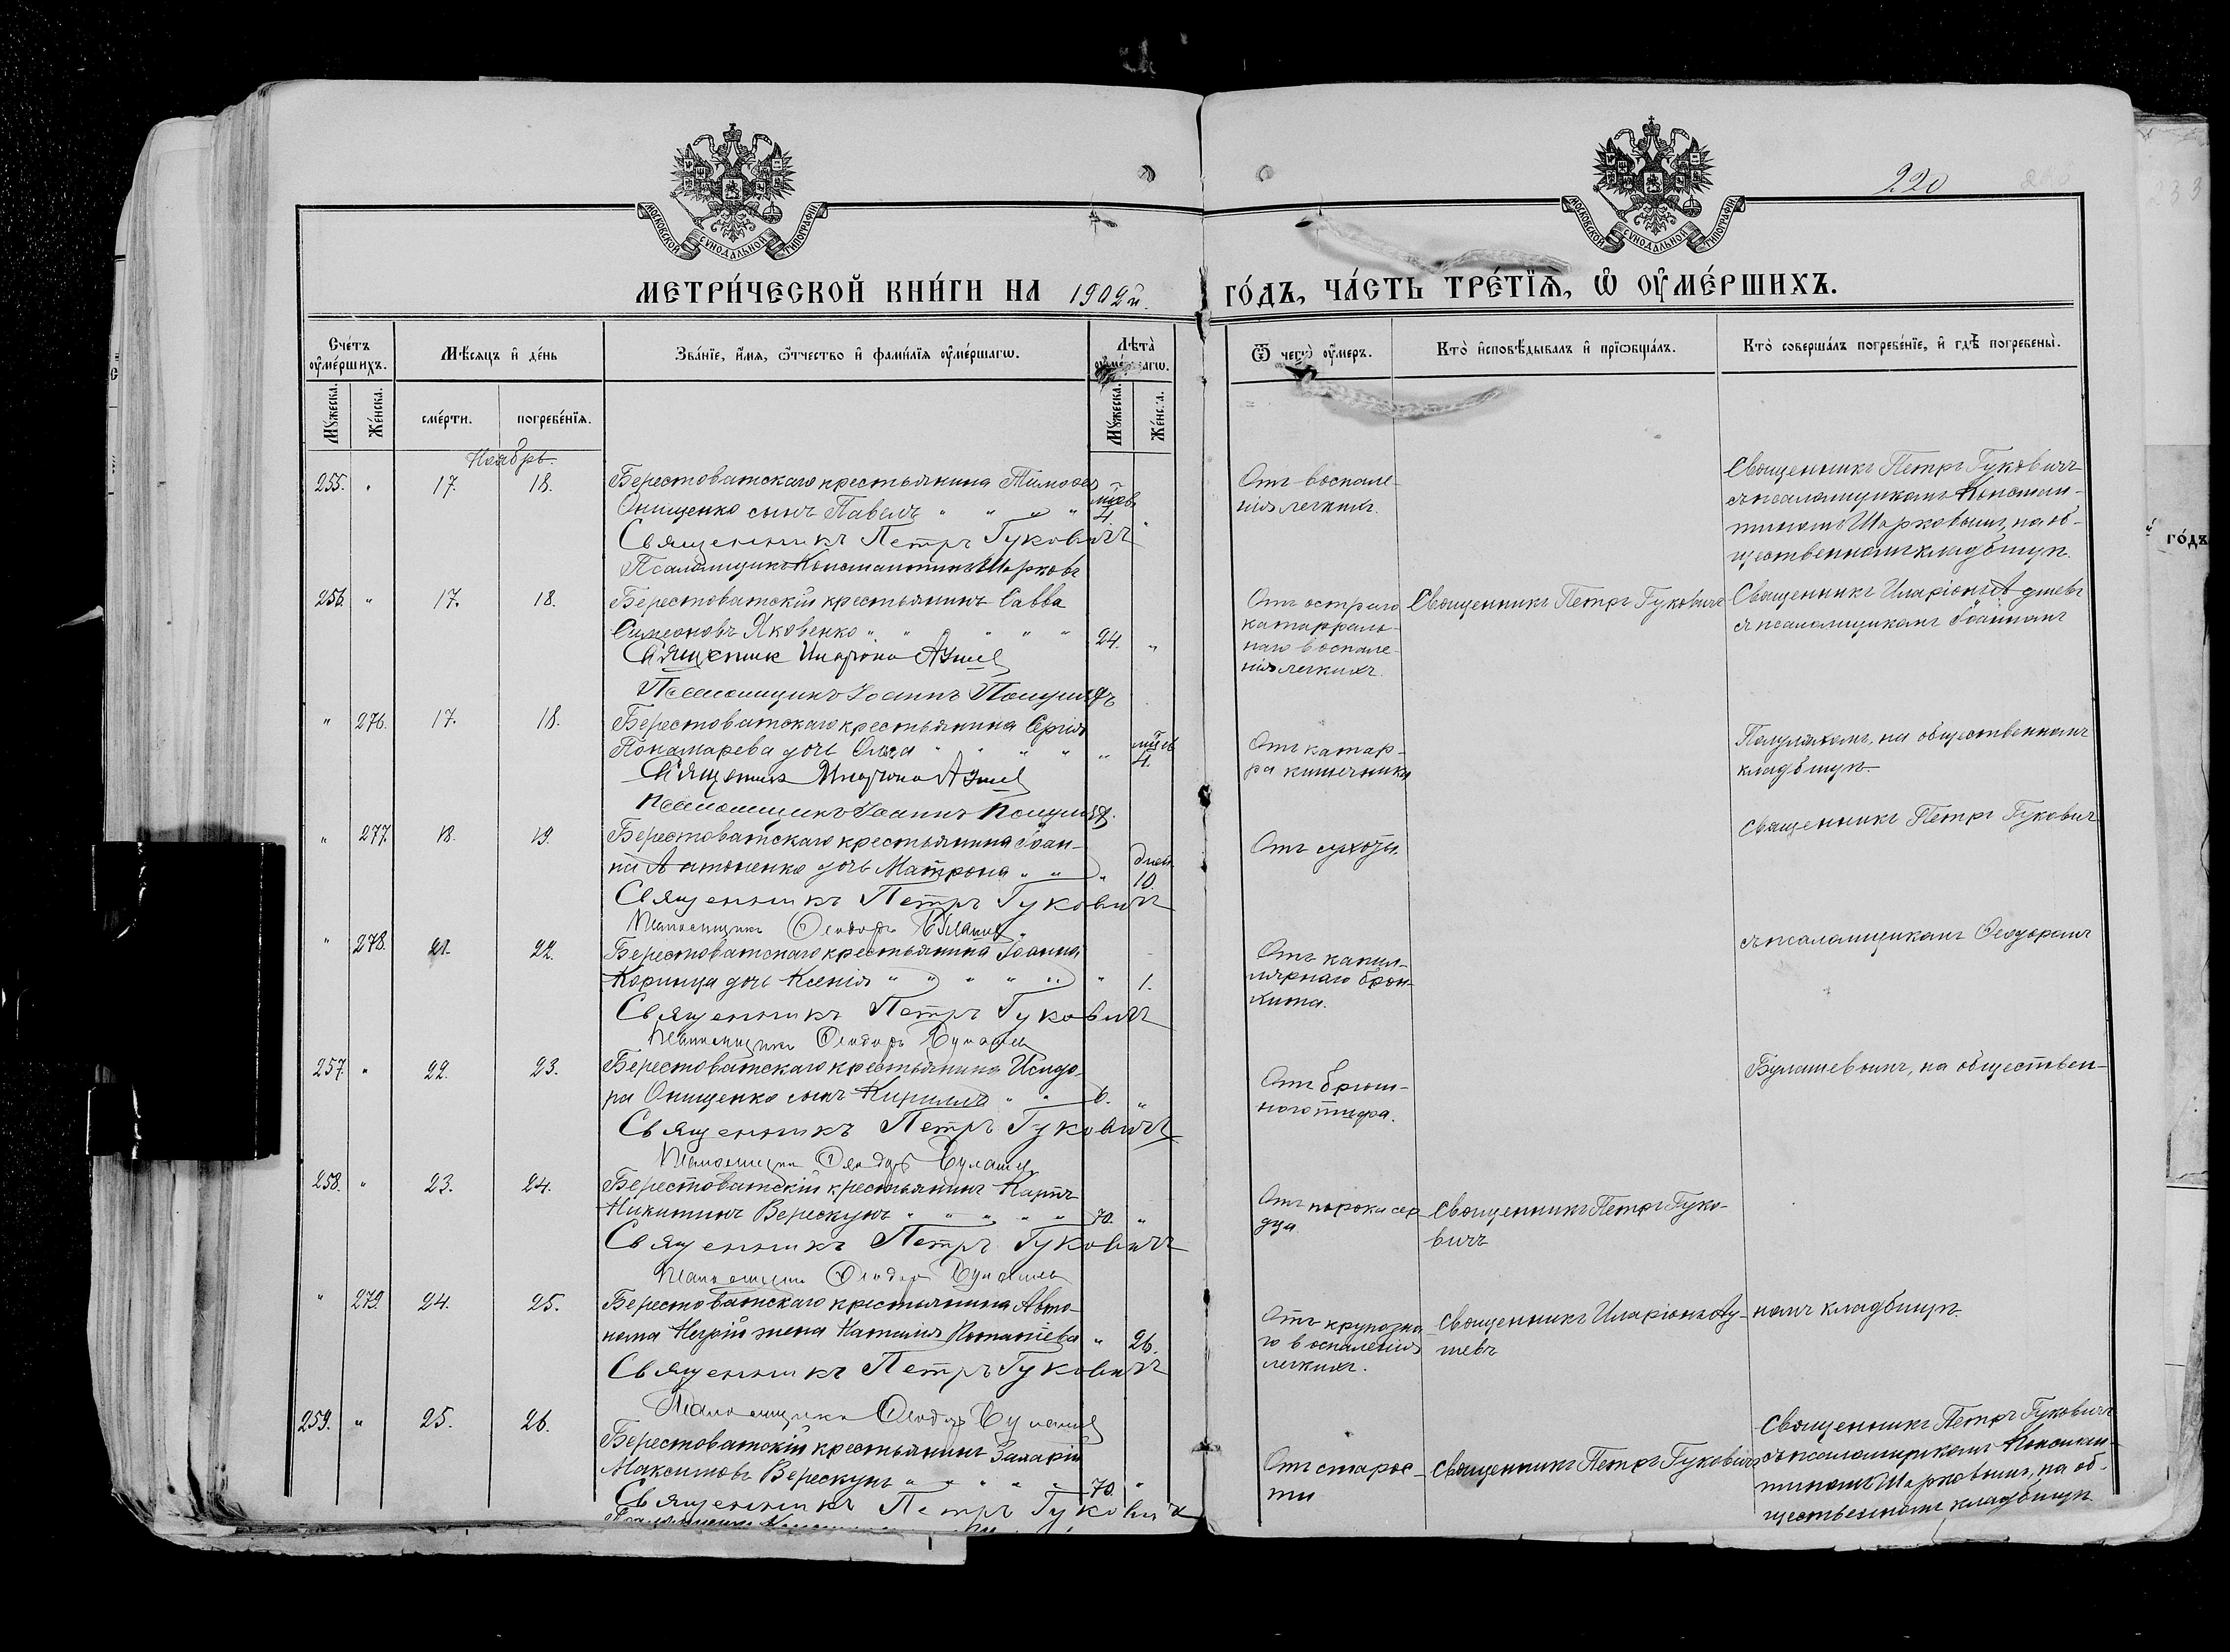 220
МОСКОВСКОЙ СѴНОДАЛЬНОЙ ТИПОГРАФІИ
МОСКОВСКОЙ СѴНОДАЛЬНОЙ ТИПОГРАФІИ
МЕТРИ́ЧЕСКОЙ КНИ́ГИ НА 1902й. ГО́ДЪ, ЧА́СТЬ ТРЕ́ТЇѦ, Ѡ ОУМЕ́РШИХЪ.
Сче́тъ оуме́ршихъ.
Мѣ́сяцъ и де́нь
Зва́нїе, и́мѧ, ѻ́тчество и фами́лїѧ оуме́ршагѡ.
Лѣта̀ оуме́ршагѡ.
Ѿ чегѡ̀ оу́меръ.
Кто̀ и҆сповѣ́дывалъ и҆ прїѡбща́лъ.
Кто̀ соверша́лъ погребе́нїе, и҆ гдѣ̀ погребены̀.
Мꙋ́жеска.
Же́нска.
сме́рти.
погребе́нїѧ.
Мꙋ́жеска.
Же́нска.
Ноябрь.
255. " 17. 18. Берестоватскаго крестьянина Тимофея
Онищенко сынъ Павелъ " " " " мцев 4. "
Священникъ Петръ Гуковичъ
Псаломщикъ Константинъ Шарковъ
Отъ воспале-
нія легкихъ.
Священникъ Петръ Гуковичъ
съ псаломщикомъ Констан-
тиномъ Шарковымъ, на об-
щественномъ кладбищѣ.
256. " 17. 18. Берестоватскій крестьянинъ Савва
Симеоновъ Яковенко " " " " " " 24. "
Священникъ Иларіонъ
Псаломщикъ Іоаннъ
Отъ остраго
катарраль-
наго воспале-
нія легкихъ.
Священникъ Петръ Гуковичъ
Священникъ Иларіонъ
съ псаломщикомъ Іоанномъ
" 276. 17. 18. Берестоватскаго крестьянина Сергія
Пономарева дочь Ольга " " " " " мцев 4.
Священникъ Иларіонъ
Псаломщикъ Іоаннъ
Отъ катар-
ра кишечника
на общественномъ
кладбищѣ.
" 277. 18. 19. Берестоватскаго крестьянина Іоан-
на Антоненко дочь Матрона " " " дней 10.
Священникъ Петръ Гуковичъ
Псаломщикъ Ѳеодоръ
Отъ сухоты.
Священникъ Петръ Гуковичъ
" 278. 21. 22. Берестоватскаго крестьянина Іоанна
Коринца дочь Ксенія " " " " " " 1.
Священникъ Петръ Гуковичъ
Псаломщикъ Ѳеодоръ
Отъ капил-
лярнаго брон-
хита.
съ псаломщикомъ Ѳеодоромъ
257. " 22. 23. Берестоватскаго крестьянина Исидо-
ра Онищенко сынъ Кириллъ " " 6. "
Священникъ Петръ Гуковичъ
Псаломщикъ Ѳеодоръ
Отъ брюш-
ного тифа.
Булашевымъ, на обществен-
258. " 23. 24. Берестоватскій крестьянинъ Карпъ
Никитинъ Верескунъ " " " " " 70. "
Священникъ Петръ Гуковичъ
Псаломщикъ Ѳеодоръ
Отъ порока сер-
дца.
Священникъ Петръ Гуко-
вичъ
" 279. 24. 25. Берестоватскаго крестьянина Авто-
нома жена Наталія " 26.
Священникъ Петръ Гуковичъ
Псаломщикъ Ѳеодоръ
Отъ крупозна-
го воспаленія
легкихъ.
Священникъ Иларіонъ
номъ кладбищѣ.
259. " 25. 26. Берестоватскій крестьянинъ Захарій
Максимовъ Верескунъ " " " " " 70. "
Священникъ Петръ Гуковичъ
Отъ старос-
ти
Священникъ Петръ Гуковичъ
Священникъ Петръ Гуковичъ
съ псаломщикомъ Констан-
тиномъ Шарковымъ, на об-
щественномъ кладбищѣ
годъ